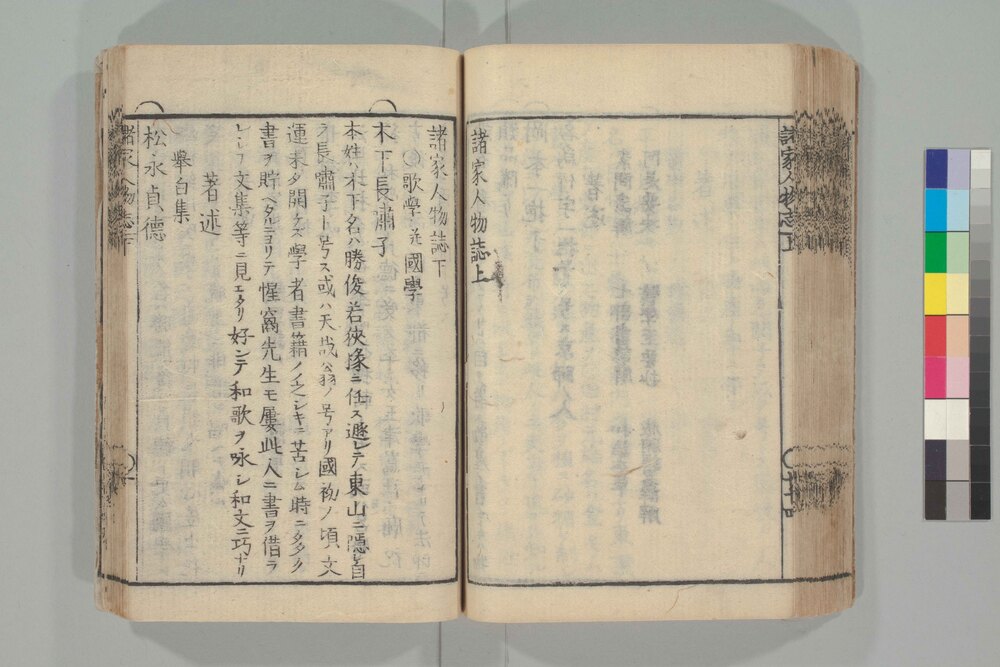 諸家人物志上
諸家人物誌上
諸家人物誌下
○歌學 并 國學
木下長嘯子
本姓ハ木下名ハ勝俊若狹掾ニ任ス遯レテ東山ニ隱ル自
ラ長嘯子ト号ス或ハ天哉翁ノ号アリ國初ノ頃文
運未タ開ケズ學者書籍ノ乏シキニ苦シム時ニタタク
書ヲ貯ヘタルニヨリテ惺窩先生モ屢此人ニ書ヲ借ラ
レシフ文集等ニ見エタリ好ンテ和歌ヲ咏シ和文ニ巧ナリ
著述
擧白集
松永貞德
諸家人物志下